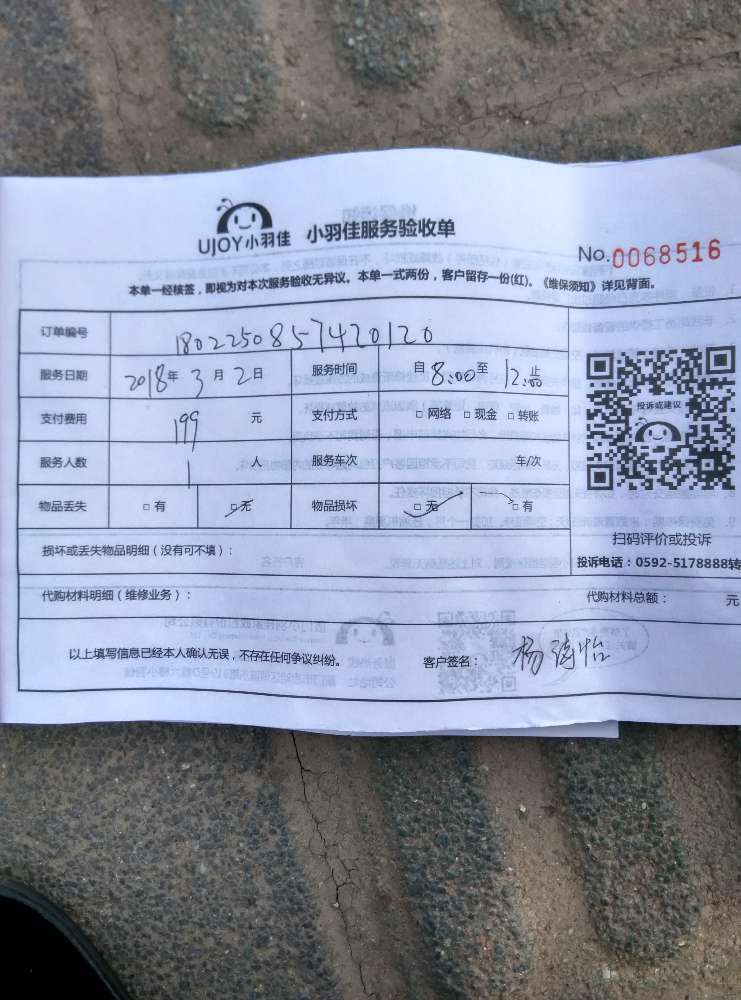 UJOY小羽佳 小羽佳服务验收单
No.0068516
本单一经核签，即视为对本次服务验收无异议。本单一式两份，客户留存一份(红)。《维保须知》详见背面。
订单编号 1802250857420120
服务日期 2018年3月2日 服务时间 自8:00至12:00止
支付费用 199元 支付方式 □网络 □现金 □转账
投诉或建议
服务人数 1人 服务车次 车/次
物品丢失 □有 □无 物品损坏 □无 □有
扫码评价或投诉
损坏或丢失物品明细（没有可不填）：
投诉电话：0592-5178888转
代购材料明细（维修业务）： 代购材料总额： 元
以上填写信息已经本人确认无误，不存在任何争议纠纷。 客户签名： 杨涛怡